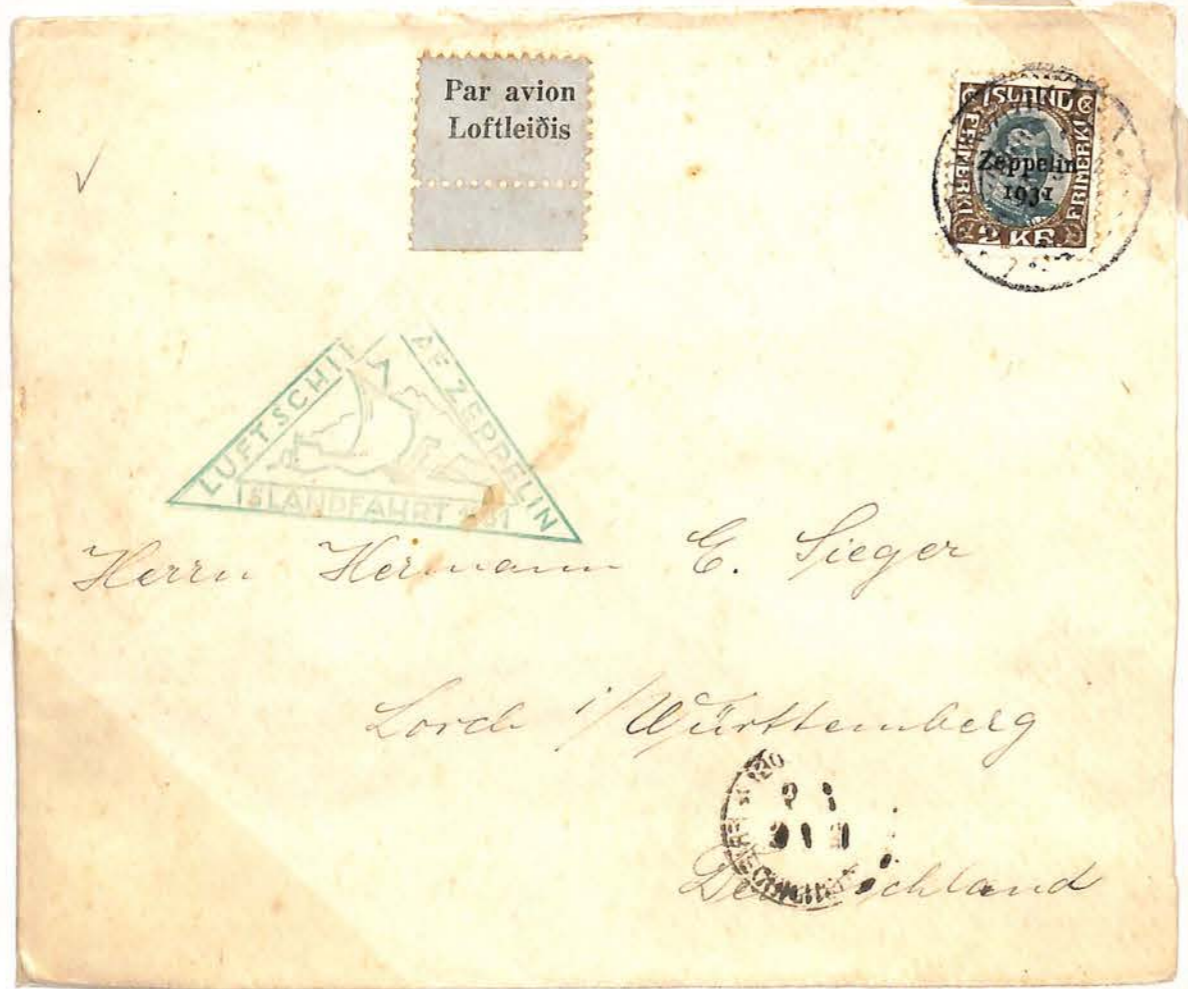 Par avion
Loftleiðis
ISLAND
FRIMERKI
FRIMERKI
Zeppelin
1931
2 KR
LUFTSCHIFF
ZEPPELIN
ISLANDFAHRT 1931
Herrn Hermann E. Sieger
Lorch i/Württemberg
Deutschland